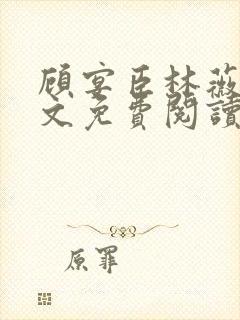 顾宴臣林薇
文免費閱讀
原罪